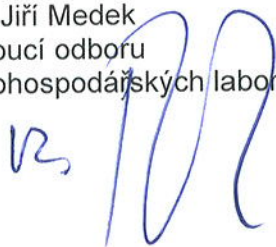 Jiří Medek
oucí odboru
ohospodářských labor